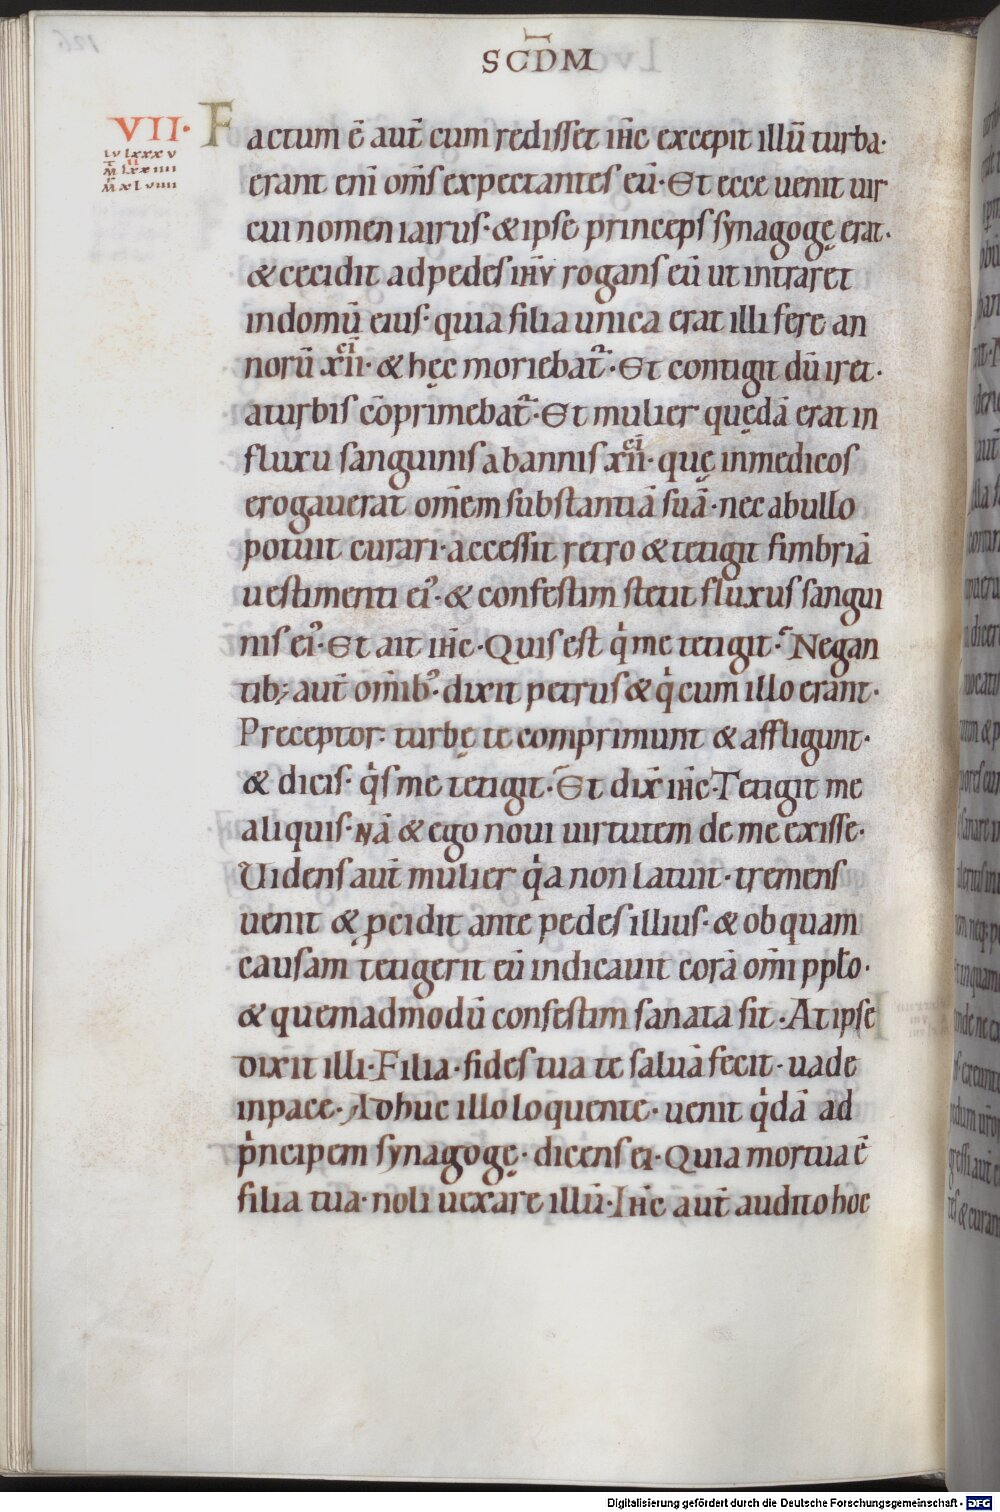 SCD̅M
VII·
LV LXXXV
M̅ LXXIIII
II
M̅ XLVIIII
Factum ē aut̄ cum redisset ih̄c excepit illū turba·
erant eni̅ om̄s expectantes eū· Et ecce uenit uir
cui nomen iairus· & ipse princeps synagogę erat·
& cecidit ad pedes ih̄v rogans eū ut intraret
in domū eius· quia filia unica erat illi fere an
norū xii^ci̅· & hęc moriebat᷑· Et contigit dū iret·
a turbis cōprimebat᷑· Et mulier quędā erat in
fluxu sanguinis ab annis xii^ci̅· quę in medicos
erogauerat om̄em substantiā suā· nec ab ullo
potuit curari· accessit retro & tetigit fimbriā
uestimenti eiꝰ· & confestim stetit fluxus sangui
nis eiꝰ· Et ait ih̄c· Quis est qͥ me tetigit· Negan
tib; aut̄ om̄ibꝰ· dixit petrus & qͥ cum illo erant·
Preceptor· turbę te comprimunt & affligunt·
& dicis· qͥs me tetigit· Et dix̄ ih̄c· Tetigit me
aliquis· nā & ego noui uirtutem de me exisse·
Uidens aut̄ mulier qͥa non latuit· tremens
uenit & ꝓcidit ante pedes illius· & ob quam
causam tetigerit eū indicauit corā om̄i pp̄lo·
& quemadmodū confestim sanata sit· At ipse
dixit illi· Filia· fides tua te saluā fecit· uade
in pace· Adhuc illo loquente· uenit qͥdā ad
pͥncipem synagogę· dicens ei· Quia mortua ē
filia tua· noli uexare illū· Ih̄c aut̄ audito hoc
Digitalisierung gefördert durch die Deutsche Forschungsgemeinschaft - DFG